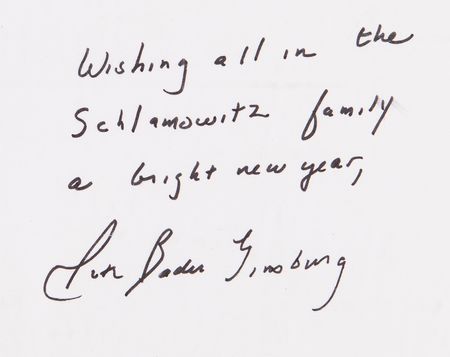 Wishing all in the
Schlamowitz family
a bright new year,
Ruth Bader Ginsburg